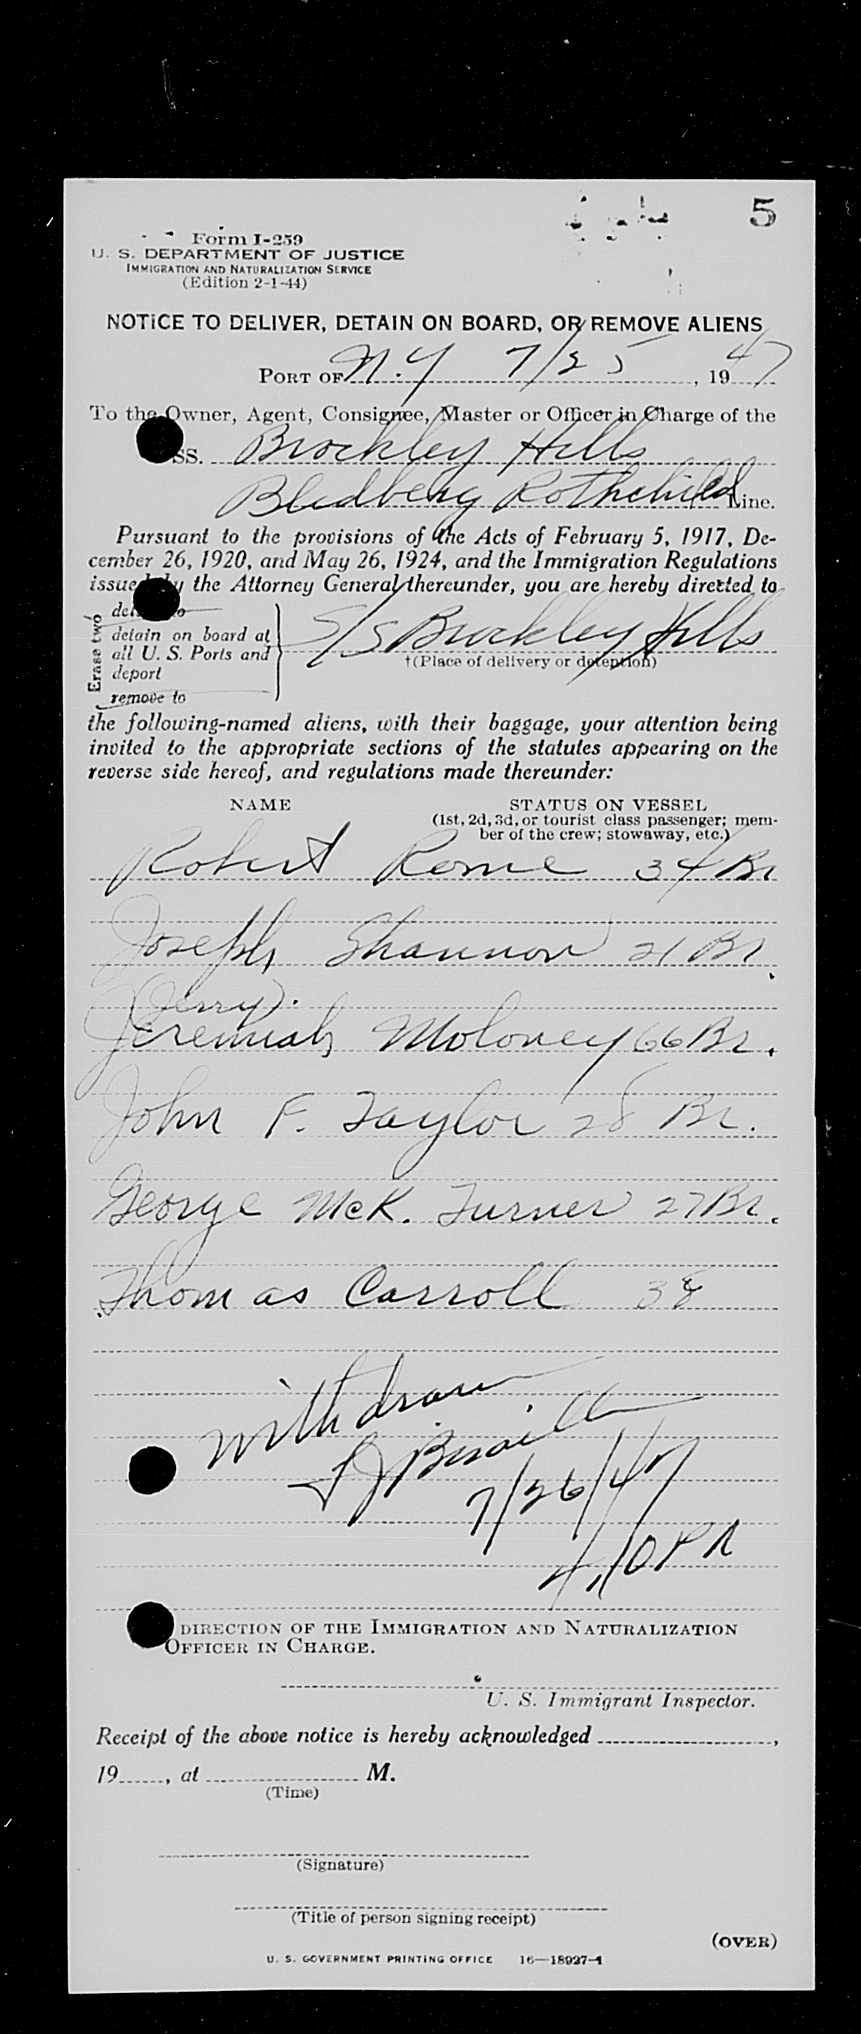 5
Form I-259
U. S. DEPARTMENT OF JUSTICE
IMMIGRATION AND NATURALIZATION SERVICE
(Edition 2-1-44)
NOTICE TO DELIVER, DETAIN ON BOARD, OR REMOVE ALIENS
PORT OF N.Y 7/25, 1947
To the Owner, Agent, Consignee, Master or Officer in Charge of the
SS. Brockley Hills
Blidberg Rothchild Line.
Pursuant to the provisions of the Acts of February 5, 1917, De-
cember 26, 1920, and May 26, 1924, and the Immigration Regulations
issued by the Attorney General thereunder, you are hereby directed to
Erase two
detain on board at
all U. S. Ports and
deport
remove to
S/S Brockley Hills
†(Place of delivery or detention)
the following-named aliens, with their baggage, your attention being
invited to the appropriate sections of the statutes appearing on the
reverse side hereof, and regulations made thereunder:
NAME STATUS ON VESSEL
(1st, 2d, 3d, or tourist class passenger; mem-
ber of the crew; stowaway, etc.)
Robert Rome 34 Br
Joseph Shannon 21 Br.
(Jerry).
Jeremiah Moloney 66 Br.
John F. Taylor 28 Br.
George McK. Turner 27 Br.
Thomas Carroll 38
Withdrawn
7/26/47
4.10 PM
DIRECTION OF THE IMMIGRATION AND NATURALIZATION
OFFICER IN CHARGE.
U. S. Immigrant Inspector.
Receipt of the above notice is hereby acknowledged ,
19 , at M.
(Time)
(Signature)
(Title of person signing receipt)
(OVER)
U. S. GOVERNMENT PRINTING OFFICE 16—18927-1